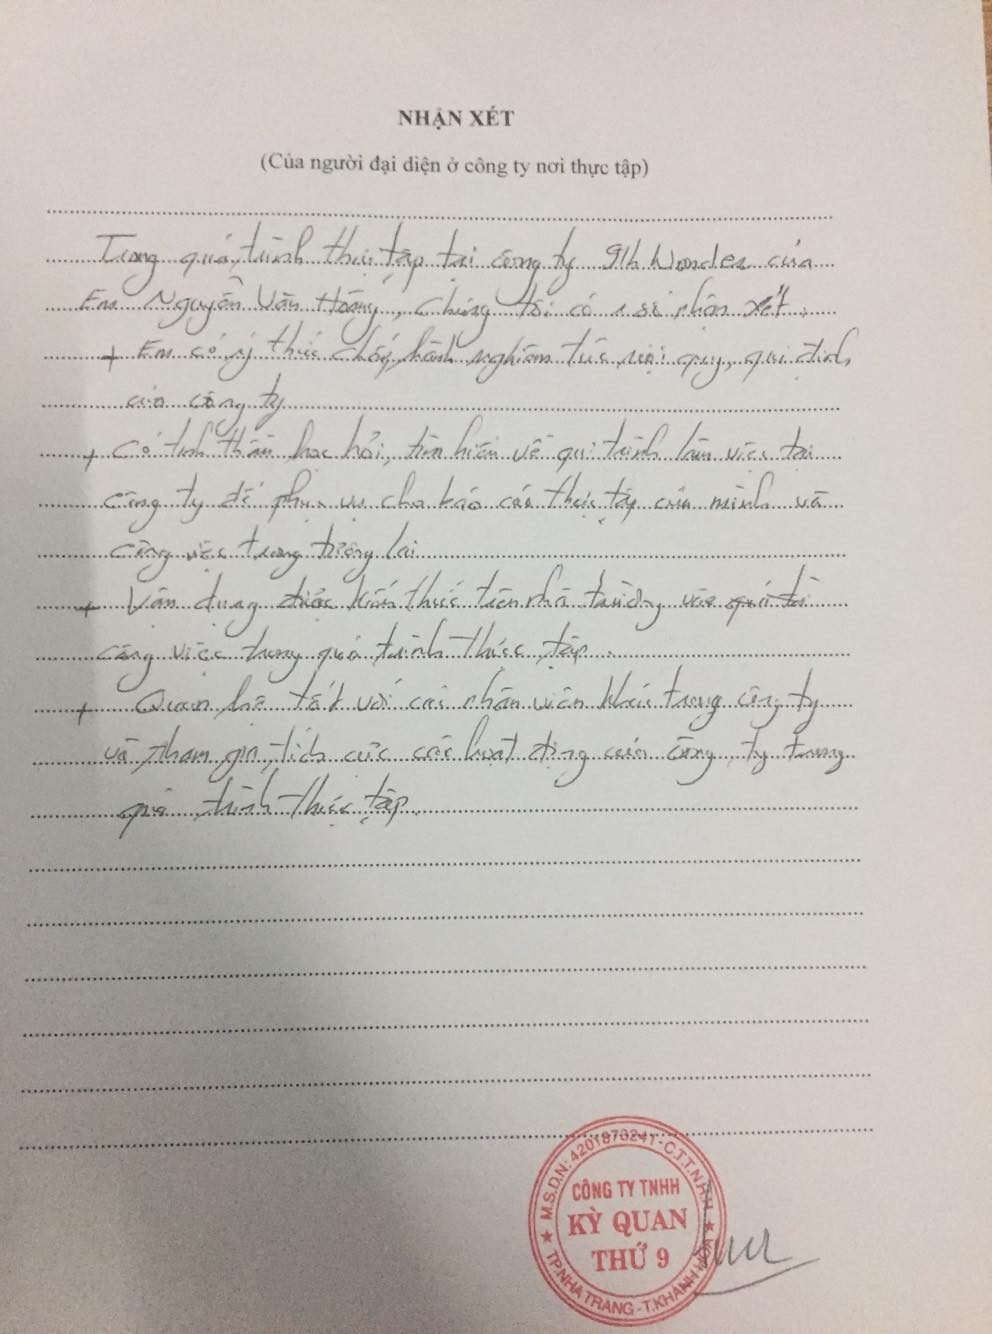 NHẬN XÉT
(Của người đại diện ở công ty nơi thực tập)
Trong quá trình thực tập tại công ty 9th Wonder của
Em Nguyễn Văn Hoàng, chúng tôi có 1 số nhận xét.
+ Em có ý thức chấp hành nghiêm túc nội quy, qui định
của công ty
+ Có tinh thần học hỏi, tìm hiểu về qui trình làm việc tại
công ty để phục vụ cho báo cáo thực tập của mình và
công việc trong tương lai
+ Vận dụng được kiến thức trên nhà trường vào quá trì
công việc trong quá trình thực tập.
+ Quan hệ tốt với các nhân viên khác trong công ty
và tham gia tích cực các hoạt động của công ty trong
quá trình thực tập.
M.S.D.N: 4201870241-C.T.T.N.H.H
CÔNG TY TNHH
KỲ QUAN
THỨ 9
TP.NHA TRANG - T.KHÁNH HÒA